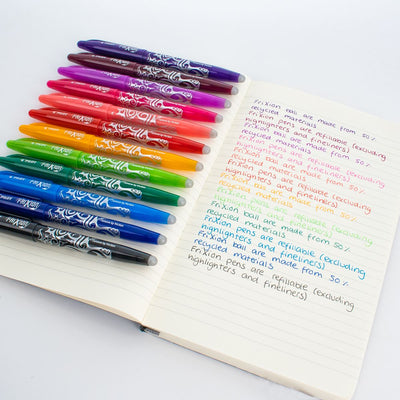 FriXion ball are made from 50%
recycled materials
FriXion pens are refillable (excluding
highlighters and fineliners)
FriXion ball are made from 50%
recycled materials
FriXion pens are refillable (excluding
highlighters and fineliners)
FriXion ball are made from 50%
recycled materials
FriXion pens are refillable (excluding
highlighters and fineliners)
FriXion ball are made from 50%
recycled materials
FriXion pens are refillable (excluding
highlighters and fineliners)